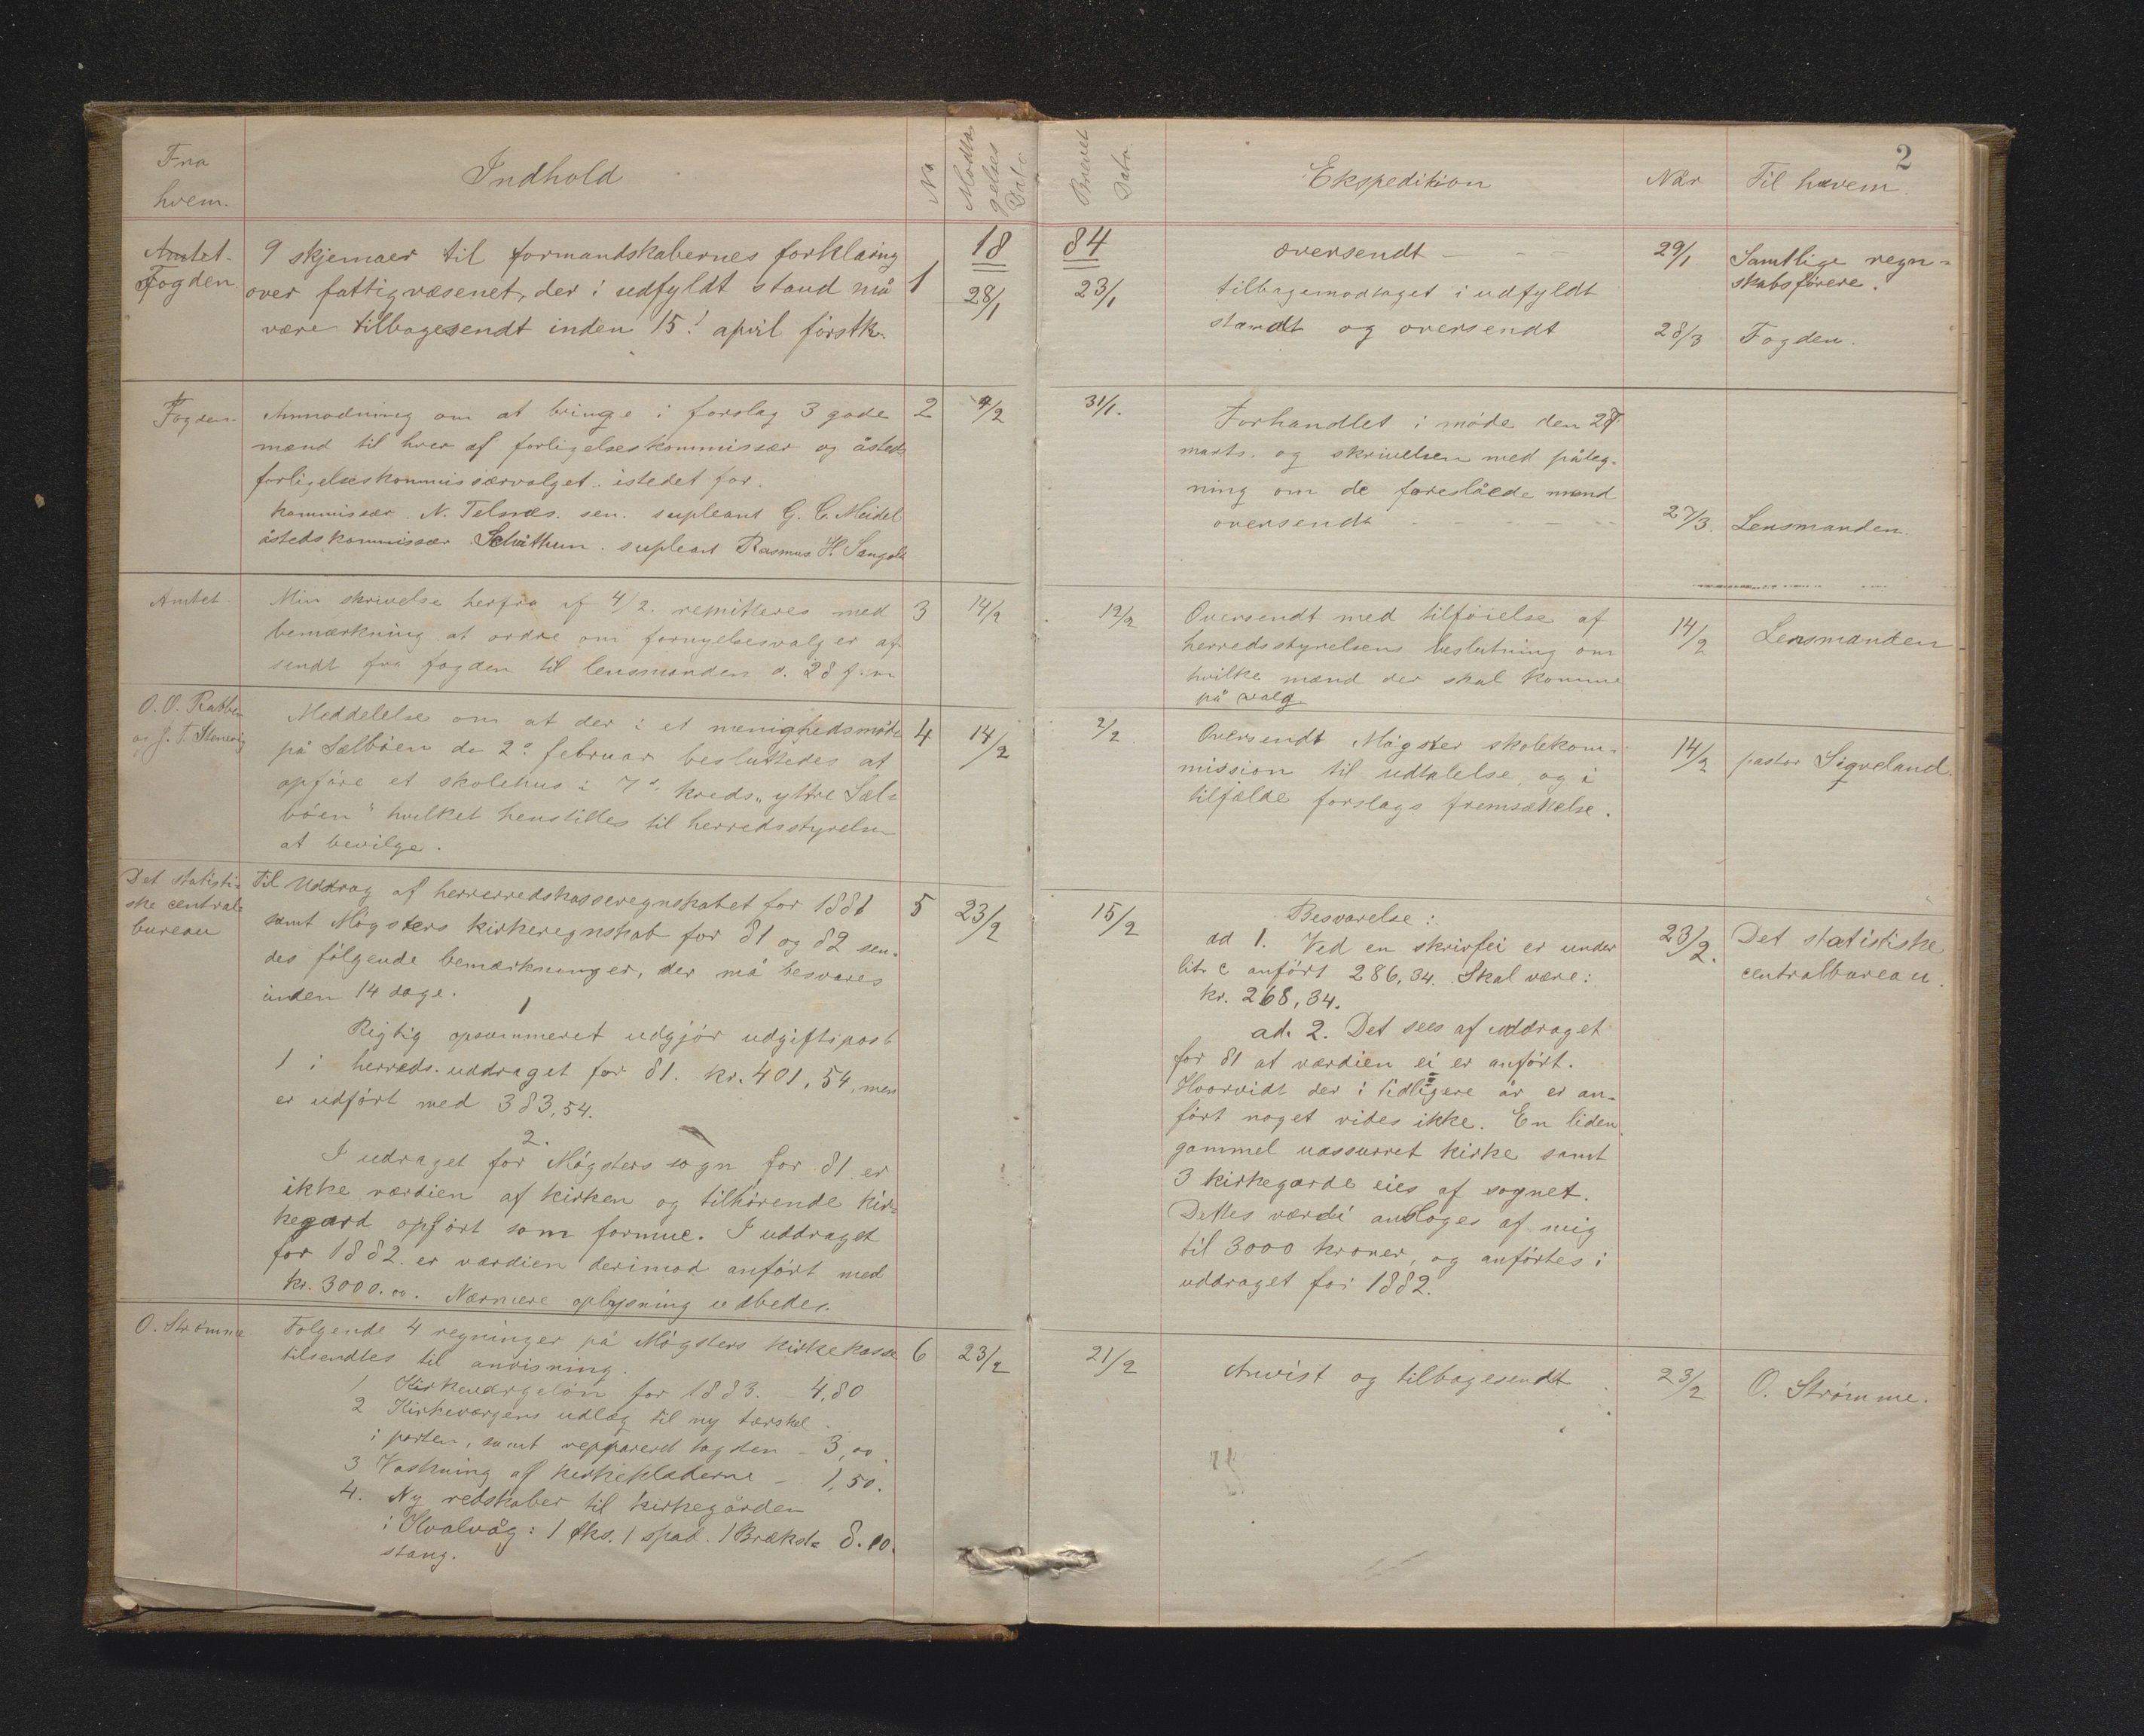 Fra
hvem.
Indhold
No
Modta
gelses
Dato
Brevets
Dato.
Ekspedition
Når
Til hvem.
2
Amtet.
Fogden
9 skjemaer til formandskabernes forklaring
over fattigvæsenet, der i udfyldt stand må
være tilbagesendt inden 15! april førstk.
1
18
28/1
84
23/1
oversendt - - -
tilbagemodtaget i udfyldt
standt og oversendt
29/1
28/3
Samtlige regn=
skabsførere.
Fogden.
Fogden
Anmodning om at bringe i forslag 3 gode
mænd til hver af forligelseskommissær og åsteds
forligelseskommissærvalget. istedet for.
kommissær. N. Telnæs. sen. supleant G. C. Meidel
åstedskommissær supleant Rasmus H.
2
4/2
31/1.
Forhandlet i møde den 27
marts. og skrivelsen med påteg-
ning om de foreslåede mænd
oversendt - - - - -
27/3.
Lensmanden.
Amtet
Min skrivelse herfra af 4/2. remitteres med
bemærkning at ordre om fornyelsesvalg er af
sendt fra fogden til lensmanden d. 28 f. m
3
14/2
12/2
Oversendt med tilføielse af
herredsstyrelsens beslutning om
hvilke mænd der skal komme
på valg
14/2
Lensmanden
O. O.
og J. T.
Meddelelse om at der i et menighedsmøde
på Sælbøen de 2° februar besluttedes at
opføre et skolehus i 7de kreds „yttre Sæl=
bøen" hvilket henstilles til herredsstyrelsen
at bevilge.
4
14/2
2/2
Oversendt Møgster skolekom=
mission til udtalelse og i
tilfælde forslags fremsættelse.
14/2
pastor Sigveland.
Det statisti=
ske central
bureau
Til Uddrag af herrerredskasseregnskabet for 1881
samt Møgsters kirkeregnskab for 81 og 82 sen=
des følgende bemærkninger, der må besvares
inden 14 dage.
1
Rigtig opsummeret udgjør udgiftspost
1 i herreds. uddraget for 81. kr. 401,54, men
er udført med 383,54.
2.
I udraget for Møgsters sogn for 81 er
ikke værdien af kirken og tilhørende kir=
kegård opført som formue. I uddraget
for 1882. er værdien derimod anført med
kr. 3000.oo. Nærmere oplysning udbedes.
5
23/2
15/2
Besvarelse:
ad 1. Ved en skrivfei er under
litr c anført 286,34. Skal være:
kr. 268,34.
ad. 2. Det sees af uddraget
for 81 at værdien ei er anført.
Hvorvidt der i tidligere år er an=
ført noget vides ikke. En liden
gammel uassurret kirke samt
3 kirkegårde eies af sognet.
Dettes værdi ansloges af mig
til 3000 kroner, og anførtes i
uddraget for 1882.
23/2.
Det statistiske
centralbureau.
O. Strømme
Følgende 4 regninger på Møgsters kirkekasse
tilsendtes til anvisning.
1 Kirkeværgeløn for 1883. - 4,80
2 Kirkeværgens udlæg til ny tærskel
i porten, samt reppareret - 3,oo
3 Vaskning af kirkeklæderne - 1,50.
4. Ny redskaber til kirkegården
i Hvalvåg: 1 øks. 1 spad. 1 Brækst= 8.00.
stang.
6
23/2
21/2
Anvist og tilbagesendt
23/2
O. Strømme.